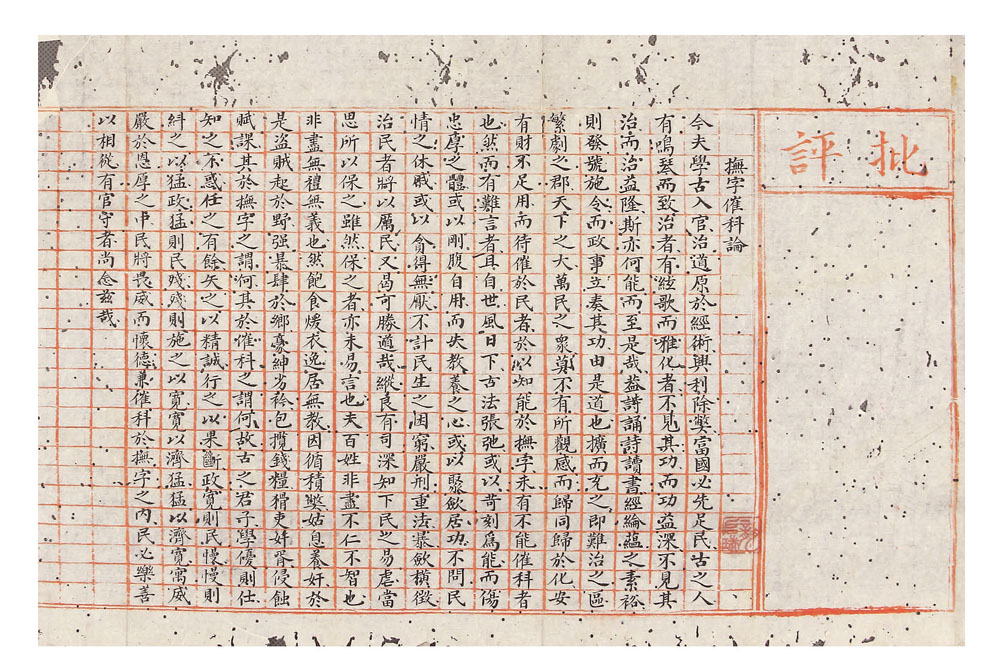 批評
撫字催科論
今夫學古入官治道原於經術興利除弊富國必先足民古之人
有鳴琴而致治者有絃歌而雅化者不見其功而功益深不見其
治而治益隆斯亦何能而至是哉蓋誦詩讀書經綸蘊之素裕
則發號施令而政事立奏其功由是道也擴而充之即難治之區
繁劇之郡天下之大萬民之衆莫不有所觀感而歸同歸於化安
有財不足用而待催於民者於以知能於撫字未有不能催科者
也然而有難言者且自世風日下古法張弛或以苛刻爲能而傷
忠厚之體或以剛腹自用而失教養之心或以聚歛居功不問民
情之休戚或以貪得無厭不計民生之困窮嚴刑重法暴歛橫徵
治民者將以厲民又曷可勝道哉縱良有司深知下民之易虐當
思所以保之雖然保之者亦未易言也夫百姓非盡不仁不智也
非盡無禮無義也然飽食煖衣逸居無教因循積弊姑息養奸於
是盜賊起於野强暴肆於鄉豪紳劣衿包攬錢糧猾吏奸胥侵蝕
賦課其於撫字之謂何其於催科之謂何故古之君子學優則仕
知之不惑任之有餘矢之以精誠行之以果斷政寬則民慢慢則
糾之以猛政猛則民殘殘則施之以寬寬以濟猛猛以濟寬寓威
嚴於恩厚之中民將畏威而懷德兼催科於撫字之内民必樂善
以相從有官守者尚念兹哉